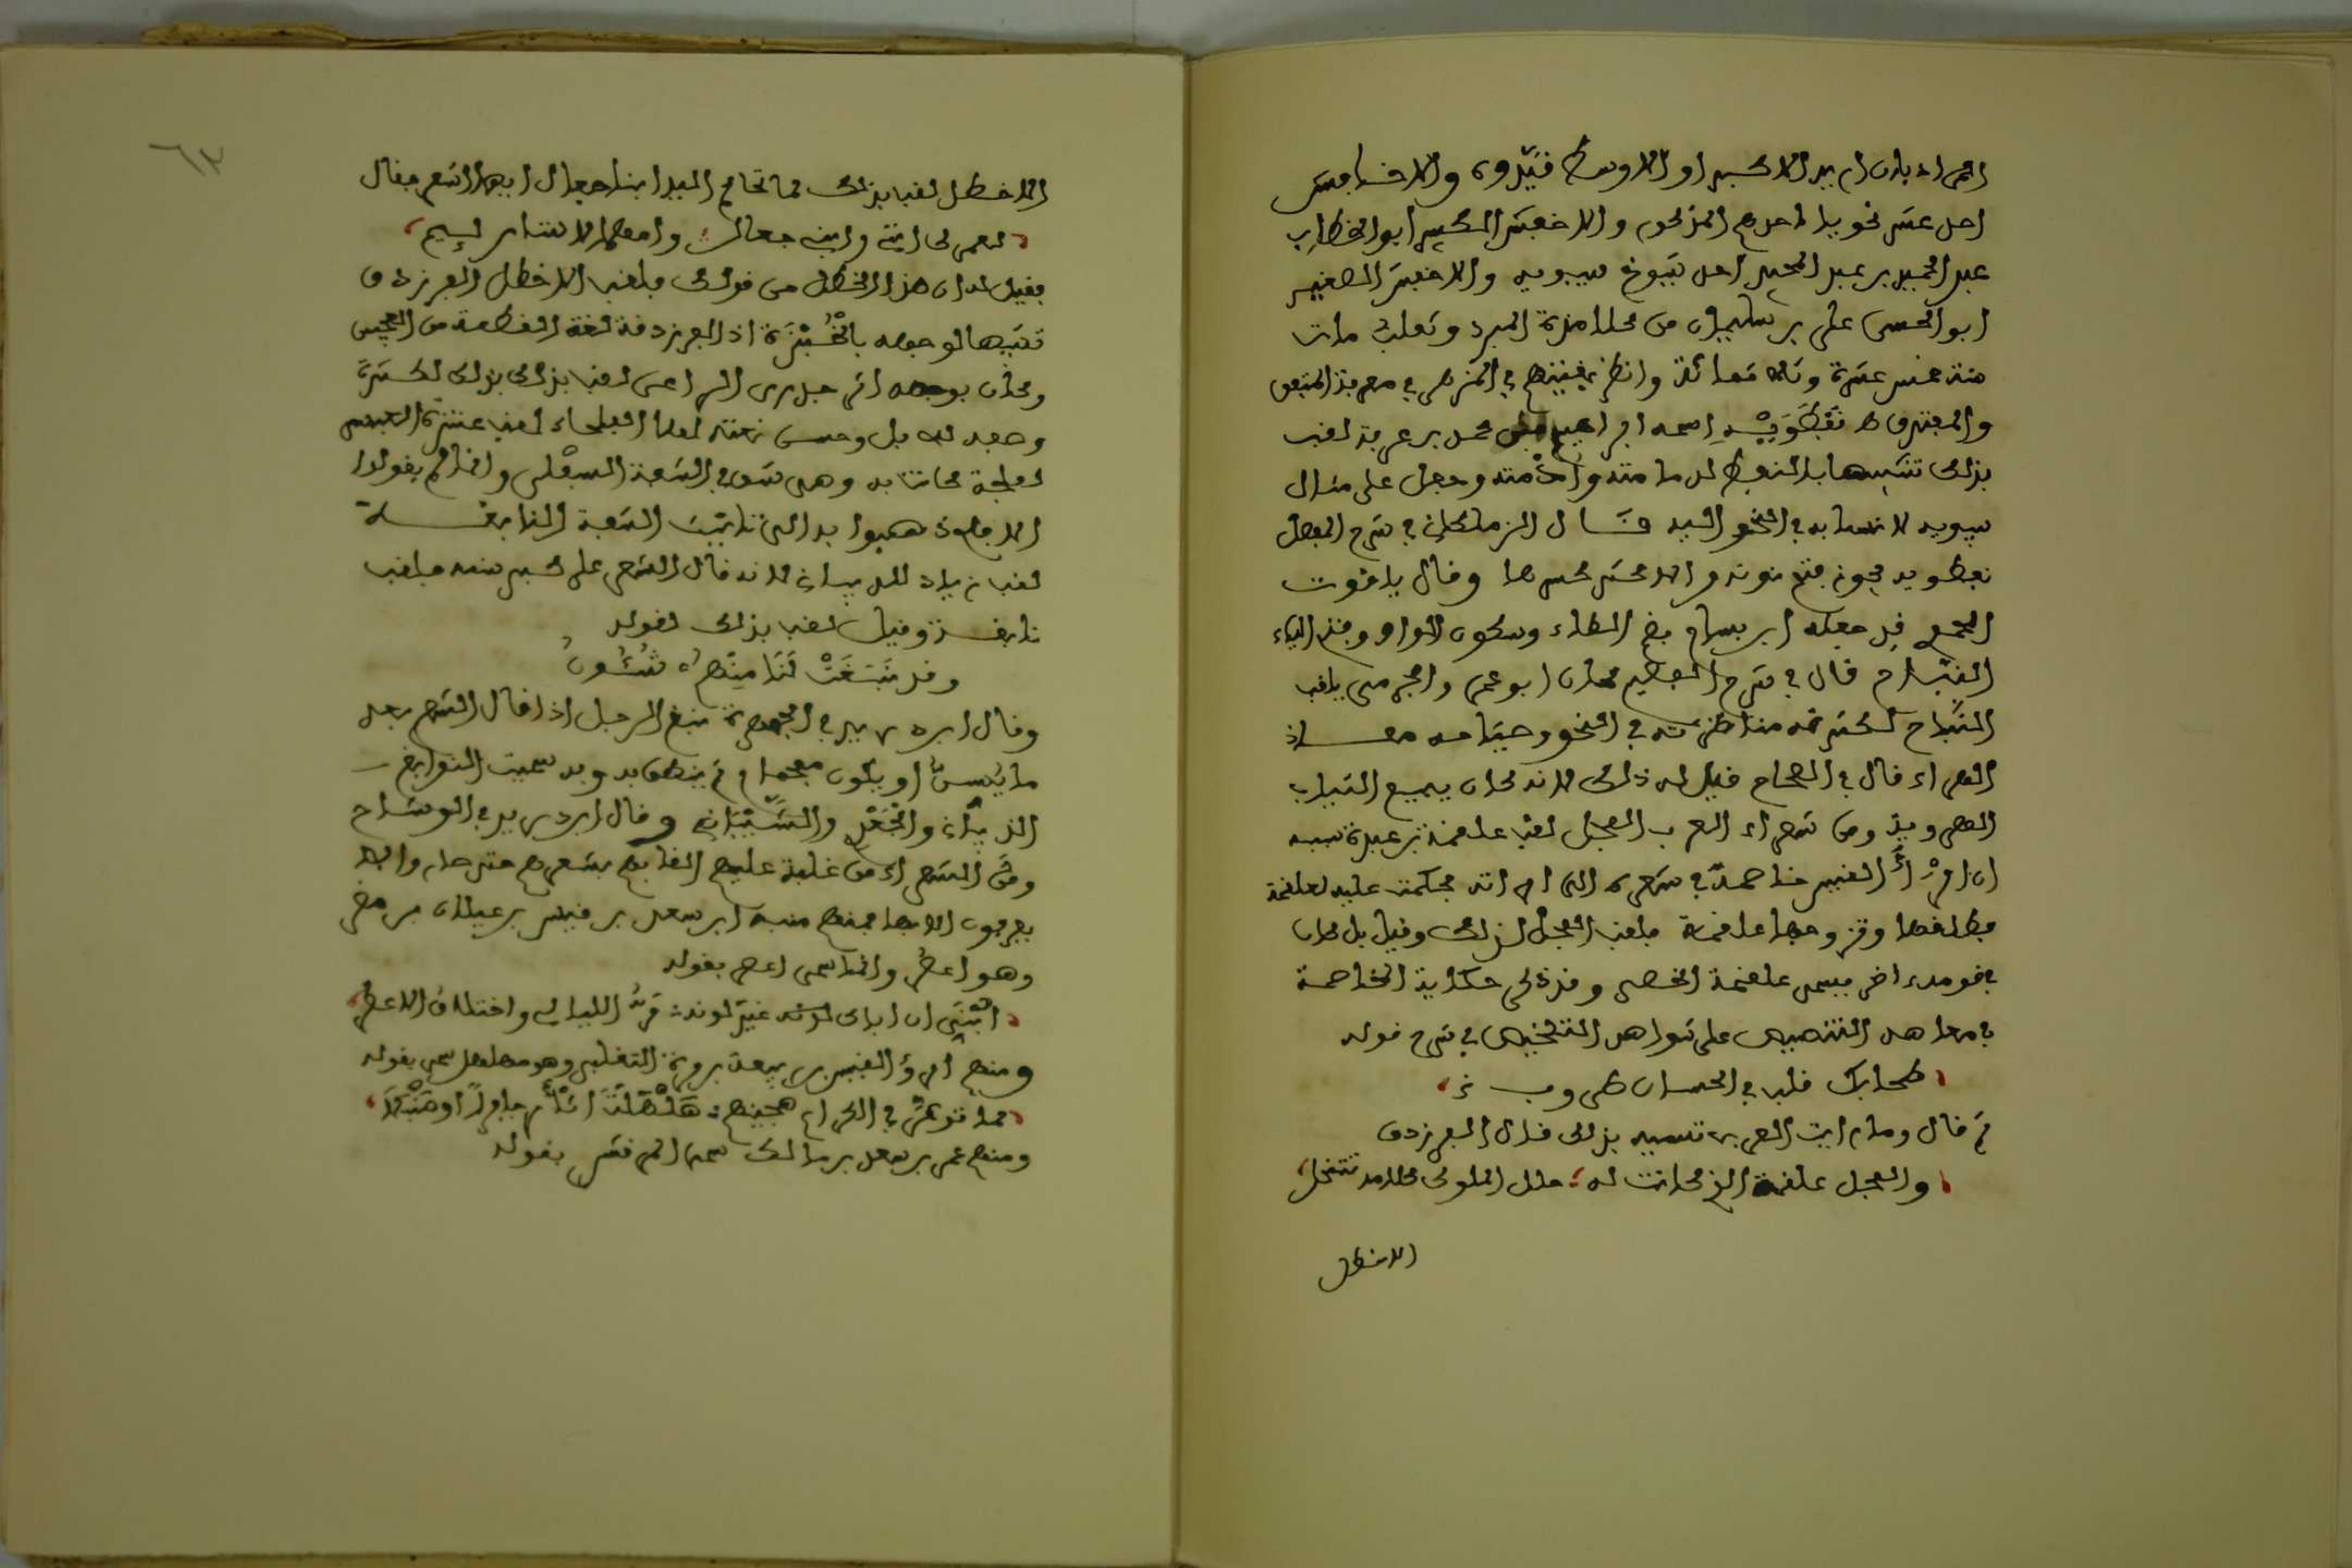 المراد بان اريد الاكبر او الاوسط قيدوه والاخافش
احد عشر نحويا احدهم المذكور والاخفش الكبير ابو الخطاب
عبد الحميد بن عبد المجيد احد شيوخ سيبويه والاخفش الصغير
ابو الحسن علي بن سليمان من تلامذة المبرد وثعلب مات
سنة خمس عشرة وثلاثمائة وانظر بقيتهم في المزهر في معرفة المتفق
والمفترق نفطويه اسمه ابراهيم بن محمد بن عرفة لقب
بذلك تشبيها بالنفط لدمامته وأدمته وجعل على مثال
سيبويه لانتسابه في النحو اليه قال الزملكاني في شرح المفصل
نفطويه يجوز فتح نونه والاكثر كسرها وقال ياقوت
قد جعله ابن بسام بضم الطاء وسكون الواو وفتح الياء
النباح قال في شرح الفصيح كان ابو عمر الجرمي يلقب
النباح لكثرة مناظرته في النحو وصياحه معاذ
الهراء قال في الصحاح قيل له ذلك لانه كان يبيع الثياب
الهروية ومن شعراء العرب الفحل لقب علقمة بن عبدة سببه
ان امرأ القيس خاصمه في شعره الى امراته فحكمت عليه لعلقمة
فطلقها وتزوجها علقمة فلقب الفحل لذلك وقيل بل كان
في قومه اخر يسمى علقمة الخصي وقد ذكر حكاية المخاصمة
في معاهد التنصيص على شواهد التلخيص في شرح قوله
طحا بك قلب في الحسان طروب
ثم قال وما رايت العرب تسميه بذلك قال الفرزدق
والفحل علقمة الذي كانت له حلل الملوك كلامه تتنخل
الاخطل
٦٣
الاخطل لقب بذلك لما تحاكم اليه ابنا جعال ايهما اشعر فقال
لعمرك انني وابني جعال وامهما لاستار لئيم
فقيل له ان هذا لخطل من قولك فلقب الاخطل الفرزدق
تشبيها لوجهه بالخبزة اذ الفرزدقة لغة القطعة من العجين
وكان بوجهه اثر جدري الراعي لقب بذلك لكثرة
وصفه للابل وحسن نعته لها الفلحاء لقب عنترة العبسي
لفلحة كانت به وهي شق في الشفة السفلى واذا لم يقولوا
الافلح ذهبوا به الى تانيث الشفة النابغة
لقب زياد الذبياني لانه قال الشعر على كبر سنه فلقب
نابغة وقيل لقب بذلك لقوله
وقد نبغت لنا منهم شئون
وقال ابن دريد في الجمهرة نبغ الرجل اذا قال الشعر بعد
ما يسن او يكون مفحما ثم ينطق به وبه سميت النوابغ
الذبياني والجعدي والشيباني وقال ابن دريد في الوشاح
ومن الشعراء من غلبت عليهم القابهم بشعرهم حتى صاروا لا
يعرفون الا بها فمنهم منبه ابن سعد بن قيس بن عيلان بن مضر
وهو اعصر وانما سمي اعصر بقوله
ابني ان اباك لونه غير لونه كر الليالي واختلاف الاعصر
ومنهم امرؤ القيس بن ربيعة بن مرة التغلبي وهو مهلهل سمي بقوله
لما توعر في الكراع هجينهم هلهلت اثأر جابرا او صنبلا
ومنهم عمر بن سعد بن مالك سمي المرقش بقوله